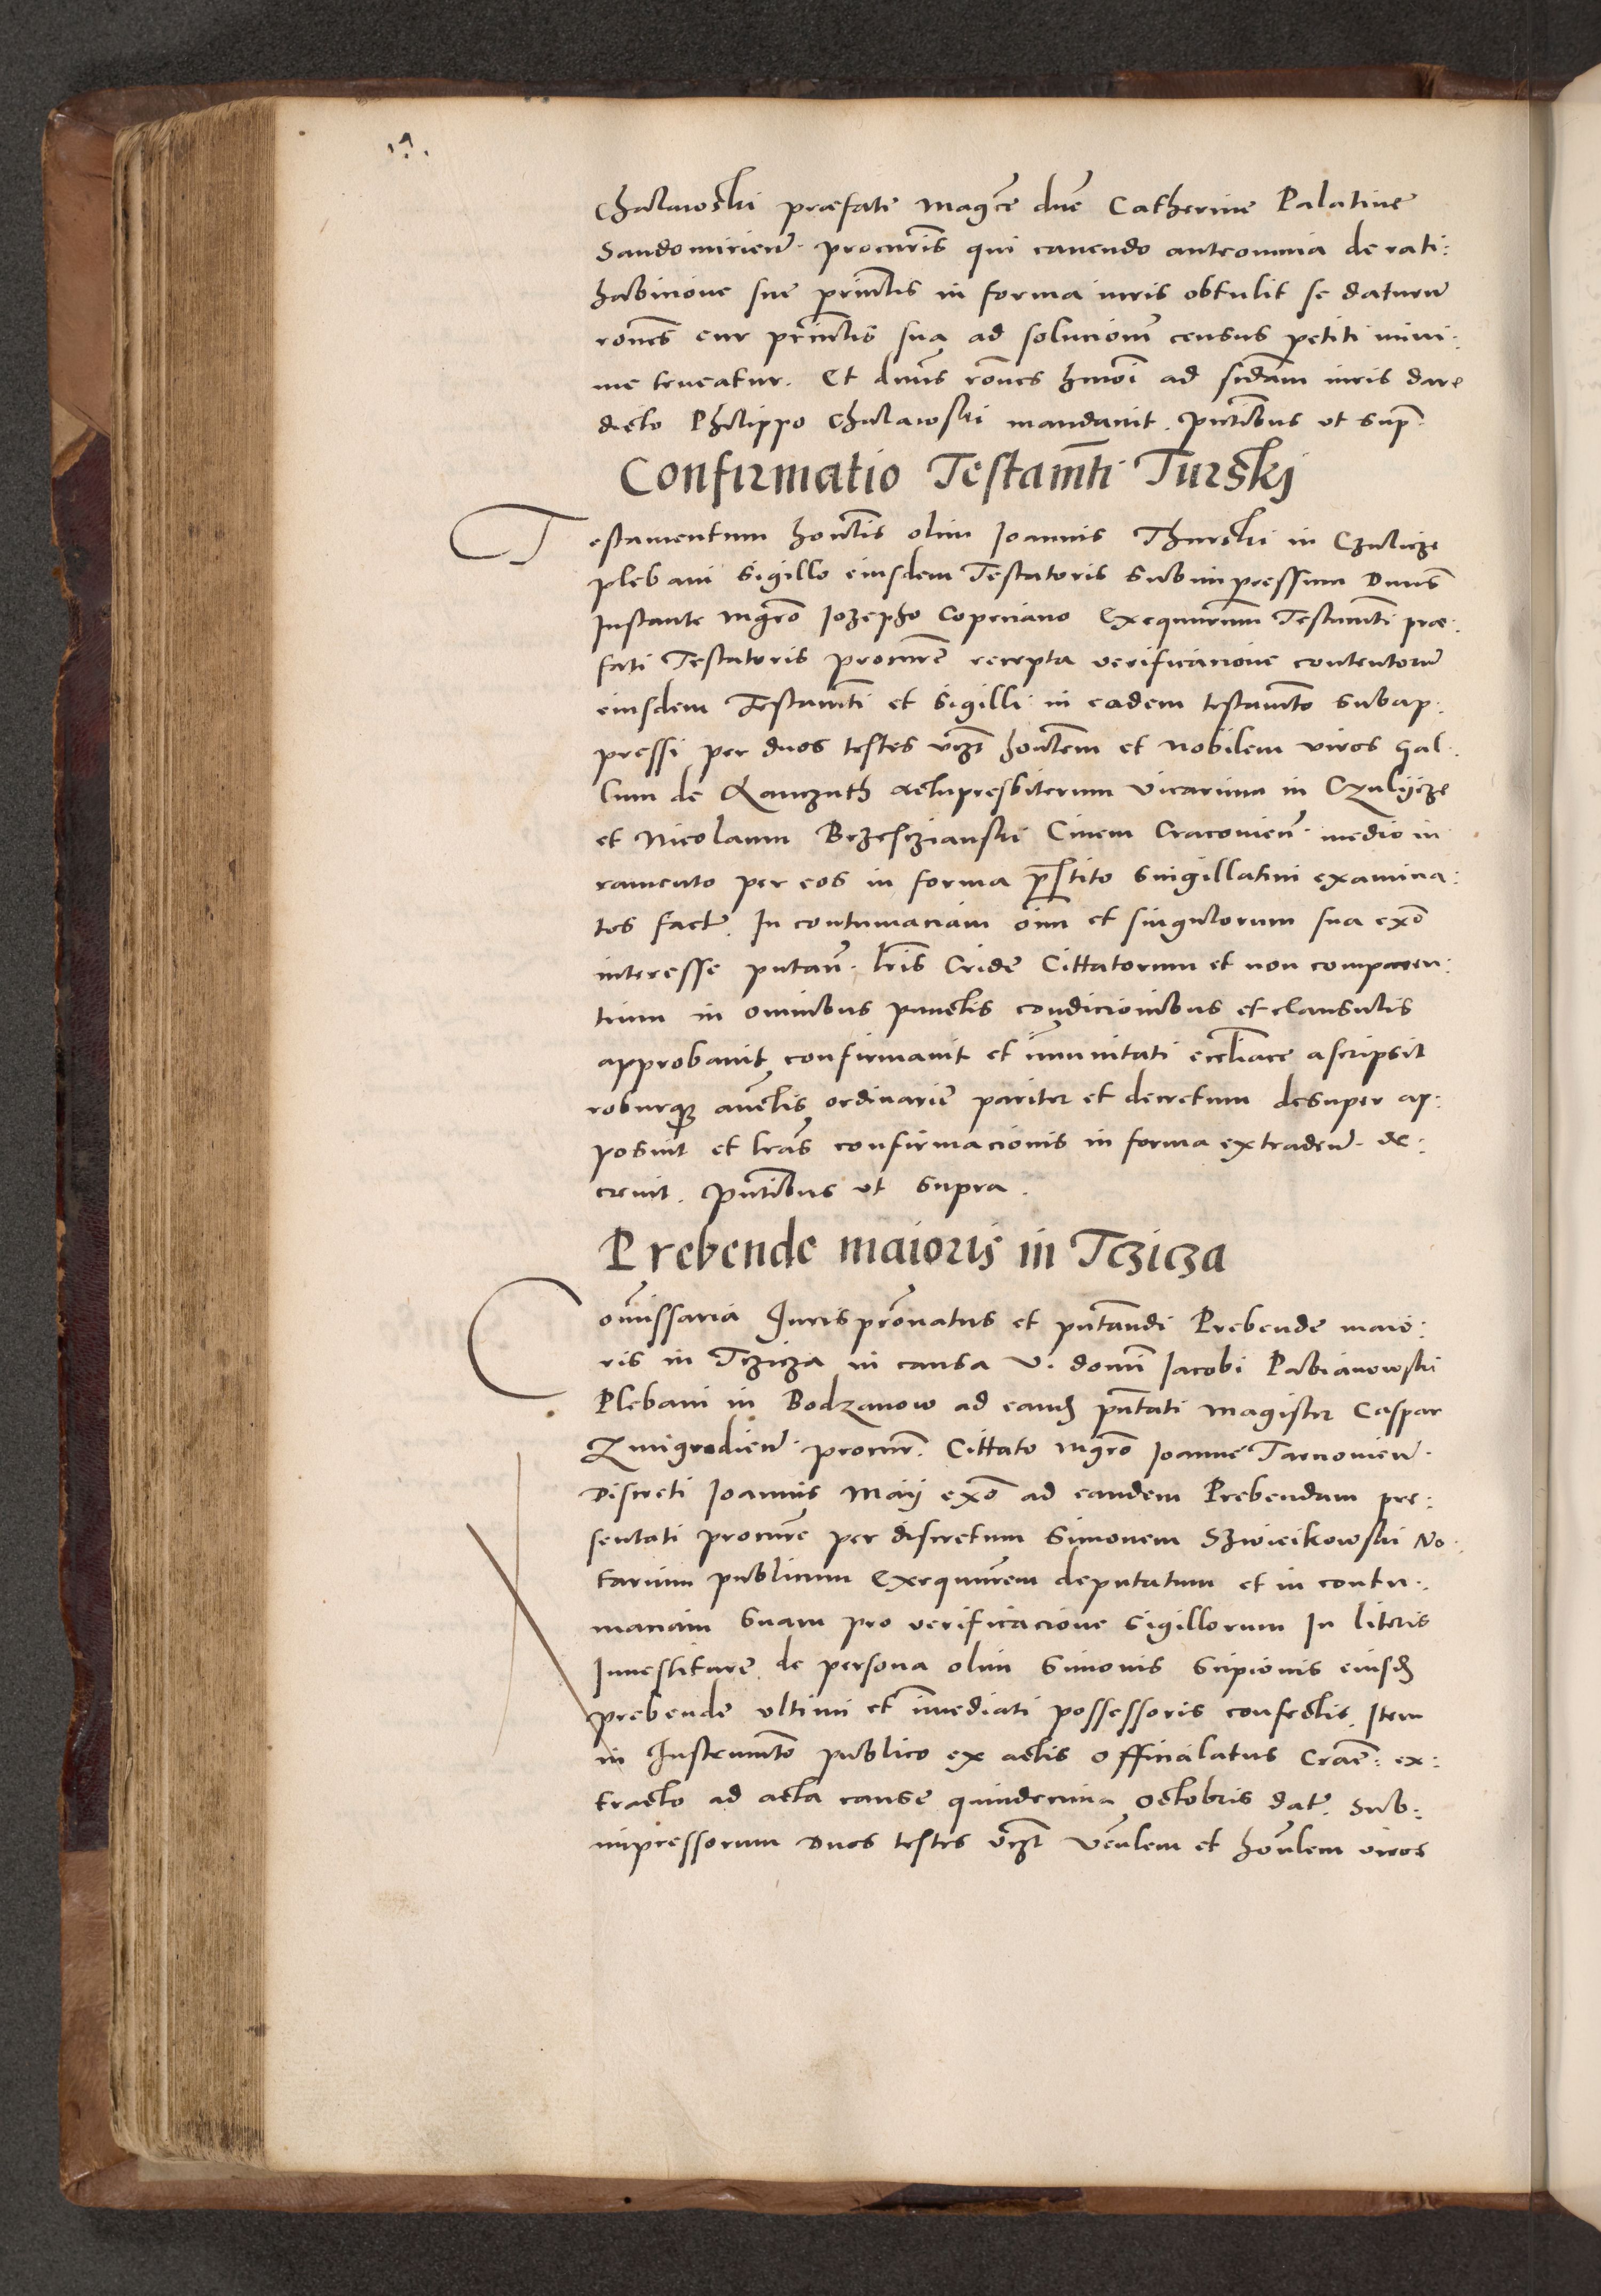 Chalawski præfate Magce dne Catherine Palatine
Sandomirien. procuris qui cavendo anteomnia de rati:
habicione sue princlis in forma iuris obtulit se daturu
rones cur princlis sua ad solucionem census petiti mini:
me teneatur. Et dnus rones hmoi ad sedam iuris dare
dicto Philippo Chalawski mandavit. Pntibus ut sup.
Confirmatio Testamti Turskj
Testamentum honelis olim Joannis Thurski in Czulicze
plebani sigillo eiusdem Testatoris subimpressum Dnus
Instante mgro Jozepho Copeciano Exequutorum Testamti præ:
fati Testatoris procure recepta verificacione contentoru
eiusdem Testamti et sigilli in eodem testamto subap:
pressi per duos testes vczt honelem et Nobilem viros Gal:
lum de Lanczuth actupresbiterum Vicarium in Czulijcze
et Nicolaum Brzesczianski Civem Cracovien. medio iu
ramento per eos in forma prestito singillatim examina:
tos facta. In contumaciam oim et singulorum sua exo
interesse putan. lris Cride Cittatorum et non comparen:
tium in omnibus punctis condicionibus et clausulis
approbavit confirmavit et imunitati eccliace ascripsit
roburque auctis ordinarie pariter et decretum desuper ap:
posuit et lras confirmacionis in forma extraden. de:
crevit. Pntibus ut supra.
Prebende maioris in Tczicza
Comissaria Juris pronatus et pntandi Prebende maio:
ris in Tczicza in causa V. domi Jacobi Pabianowski
Plebani in Bodzanow ad eand pntati Magister Caspar
Zmigrodien. procur. Cittato mgro Joanne Tarnovien.
Discreti Joannis Maij exo ad eandem Prebendam pre:
sentati procure per discretum Simonem Szwieikowski No:
tarium publicum Exequurem deputatum et in contu:
maciam suam pro verificacione sigillorum In literis
Investiture de persona olim Simonis Scipionis eiusd
prebende ultimi et imediati possessoris confectis. Item
in Instrumto publico ex actis Officialatus Crac: ex:
tracto ad acta cause quindecima Octobris dat. Sub:
impressorum Duos testes vczt Venlem et honlem viros